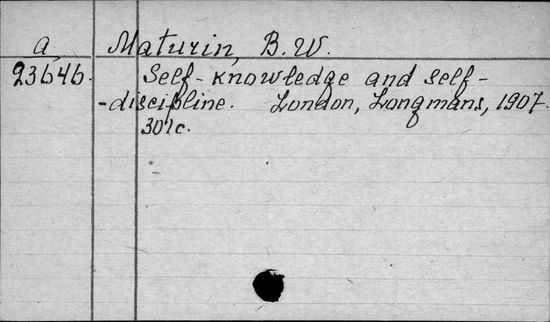 a, Maturin, B.W.
23646. Self-knowledge and self-
-discipline. London, Longmans, 1907.
307c.